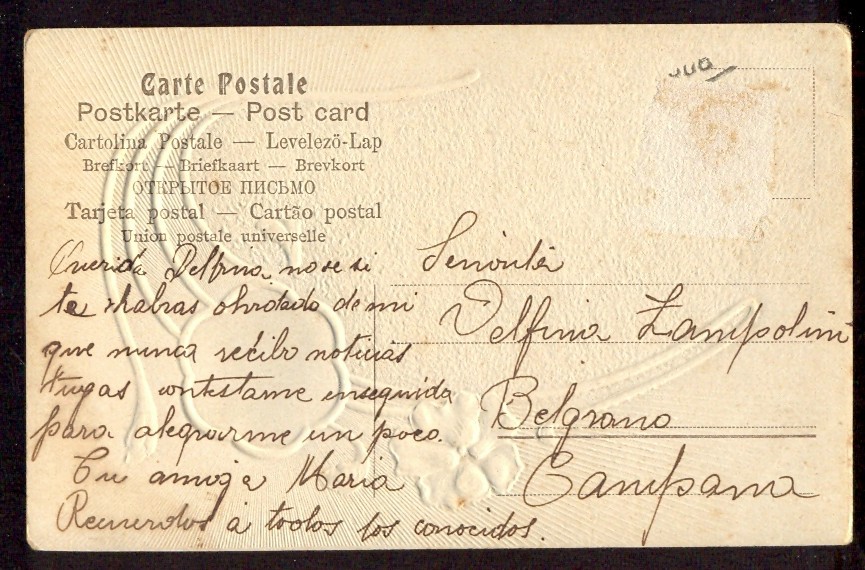 Carte Postale
Postkarte — Post card
Cartolina Postale — Levelezö-Lap
Brefkort — Briefkaart — Brevkort
ОТКРЫТОЕ ПИСЬМО
Tarjeta postal — Cartão postal
Union postale universelle
Querida Delfina no se si
te habras olvidado de mi
que nunca recibo noticias
tuyas contestame enseguida
para alegrarme un poco.
Tu amiga Maria
Recuerdos á todos los conocidos.
Señorita
Delfina Zampolini
Belgrano
Campana